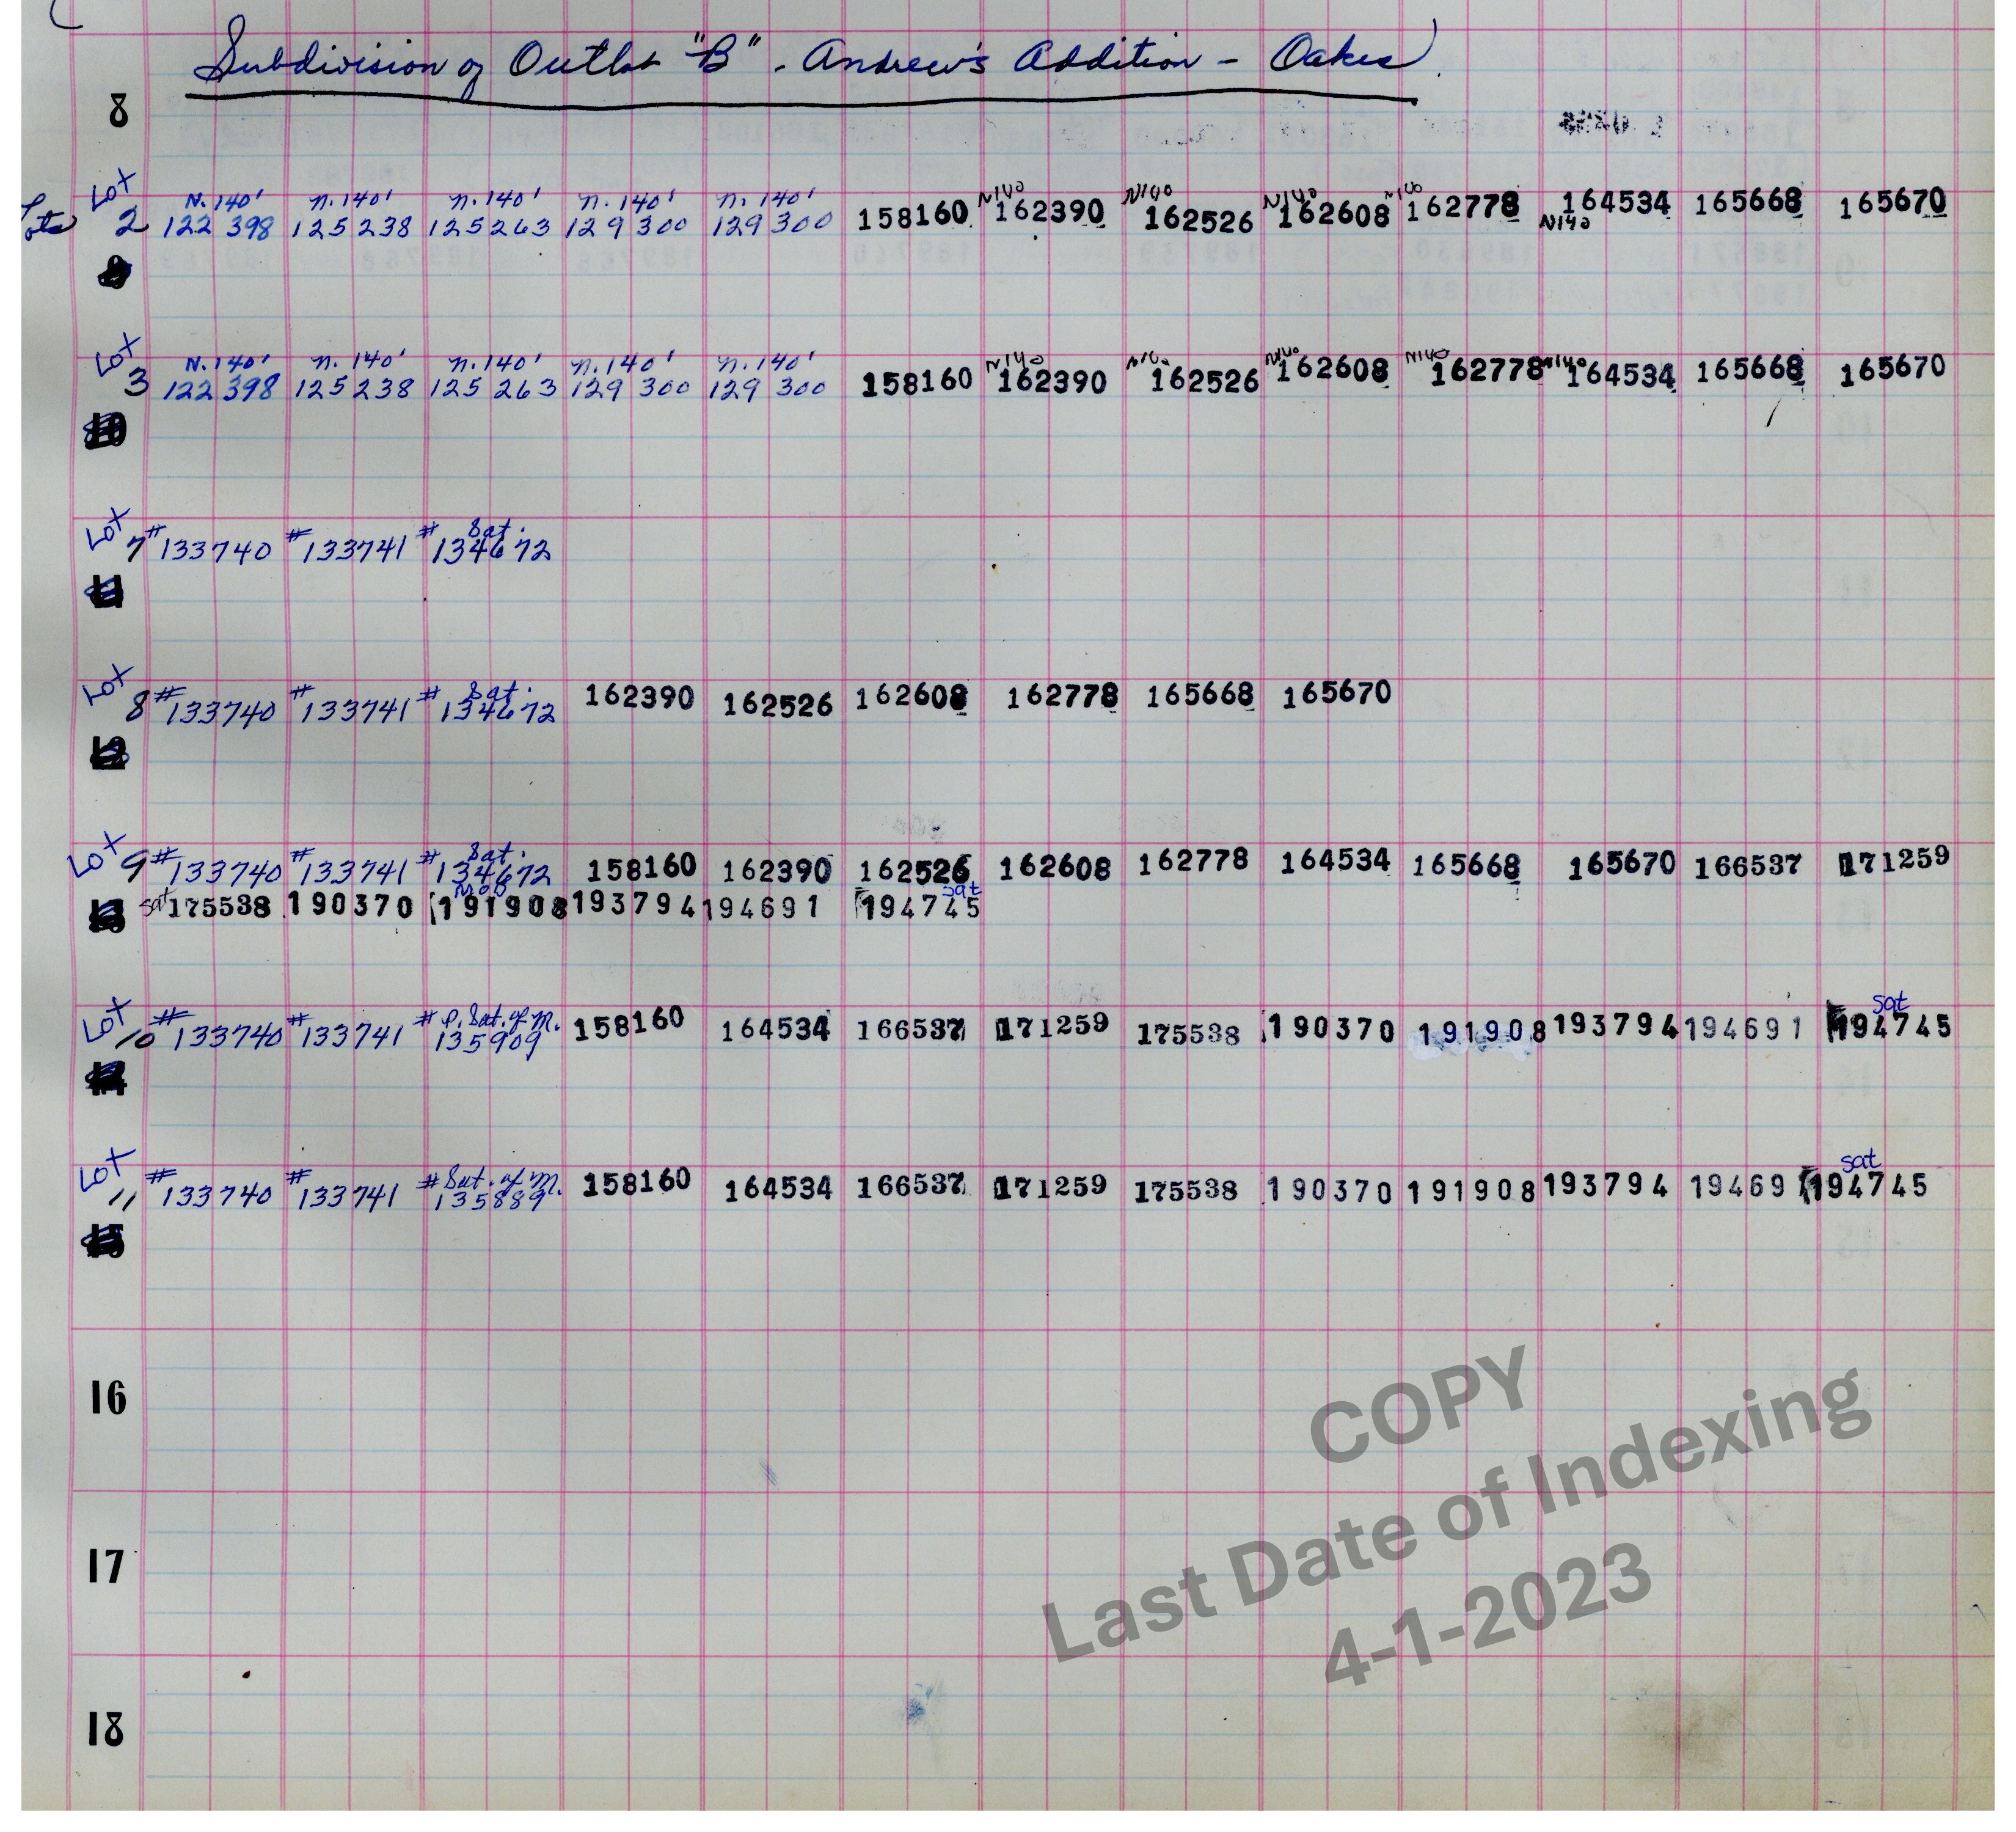 Subdivision of Outlot "B" - Andrew's Addition - Oakes
8
Lot N.140' n.140' n.140' n.140' n.140' N140 N140 N140 N140
2 122 398 125238 125263 129 300 129300 158160 162390 162526 162608 162778 164534 165668 165670
N140
Lot N.140' n.140' n.140' n.140' n.140' N140 N140 N140 N140 N140
3 122 398 125238 125 263 129 300 129 300 158160 162390 162526 162608 162778 164534 165668 165670
10
Lot Sat.
7 #133740 #133741 #134672
11
Lot Sat.
8 #133740 #133741 #134672 162390 162526 162608 162778 165668 165670
12
Lot Sat.
9 #133740 #133741 #134672 158160 162390 162526 162608 162778 164534 165668 165670 166537 171259
Mod sat
13 sat 175538 190370 191908 193794 194691 194745
Lot P. Sat. of M. sat
10 #133740 #133741 #135909 158160 164534 166537 171259 175538 190370 191908 193794 194691 194745
14
Lot Sat. of M. sat
11 #133740 #133741 #135889 158160 164534 166537 171259 175538 190370 191908 193794 19469 194745
15
16
17
18
COPY
Last Date of Indexing
4-1-2023